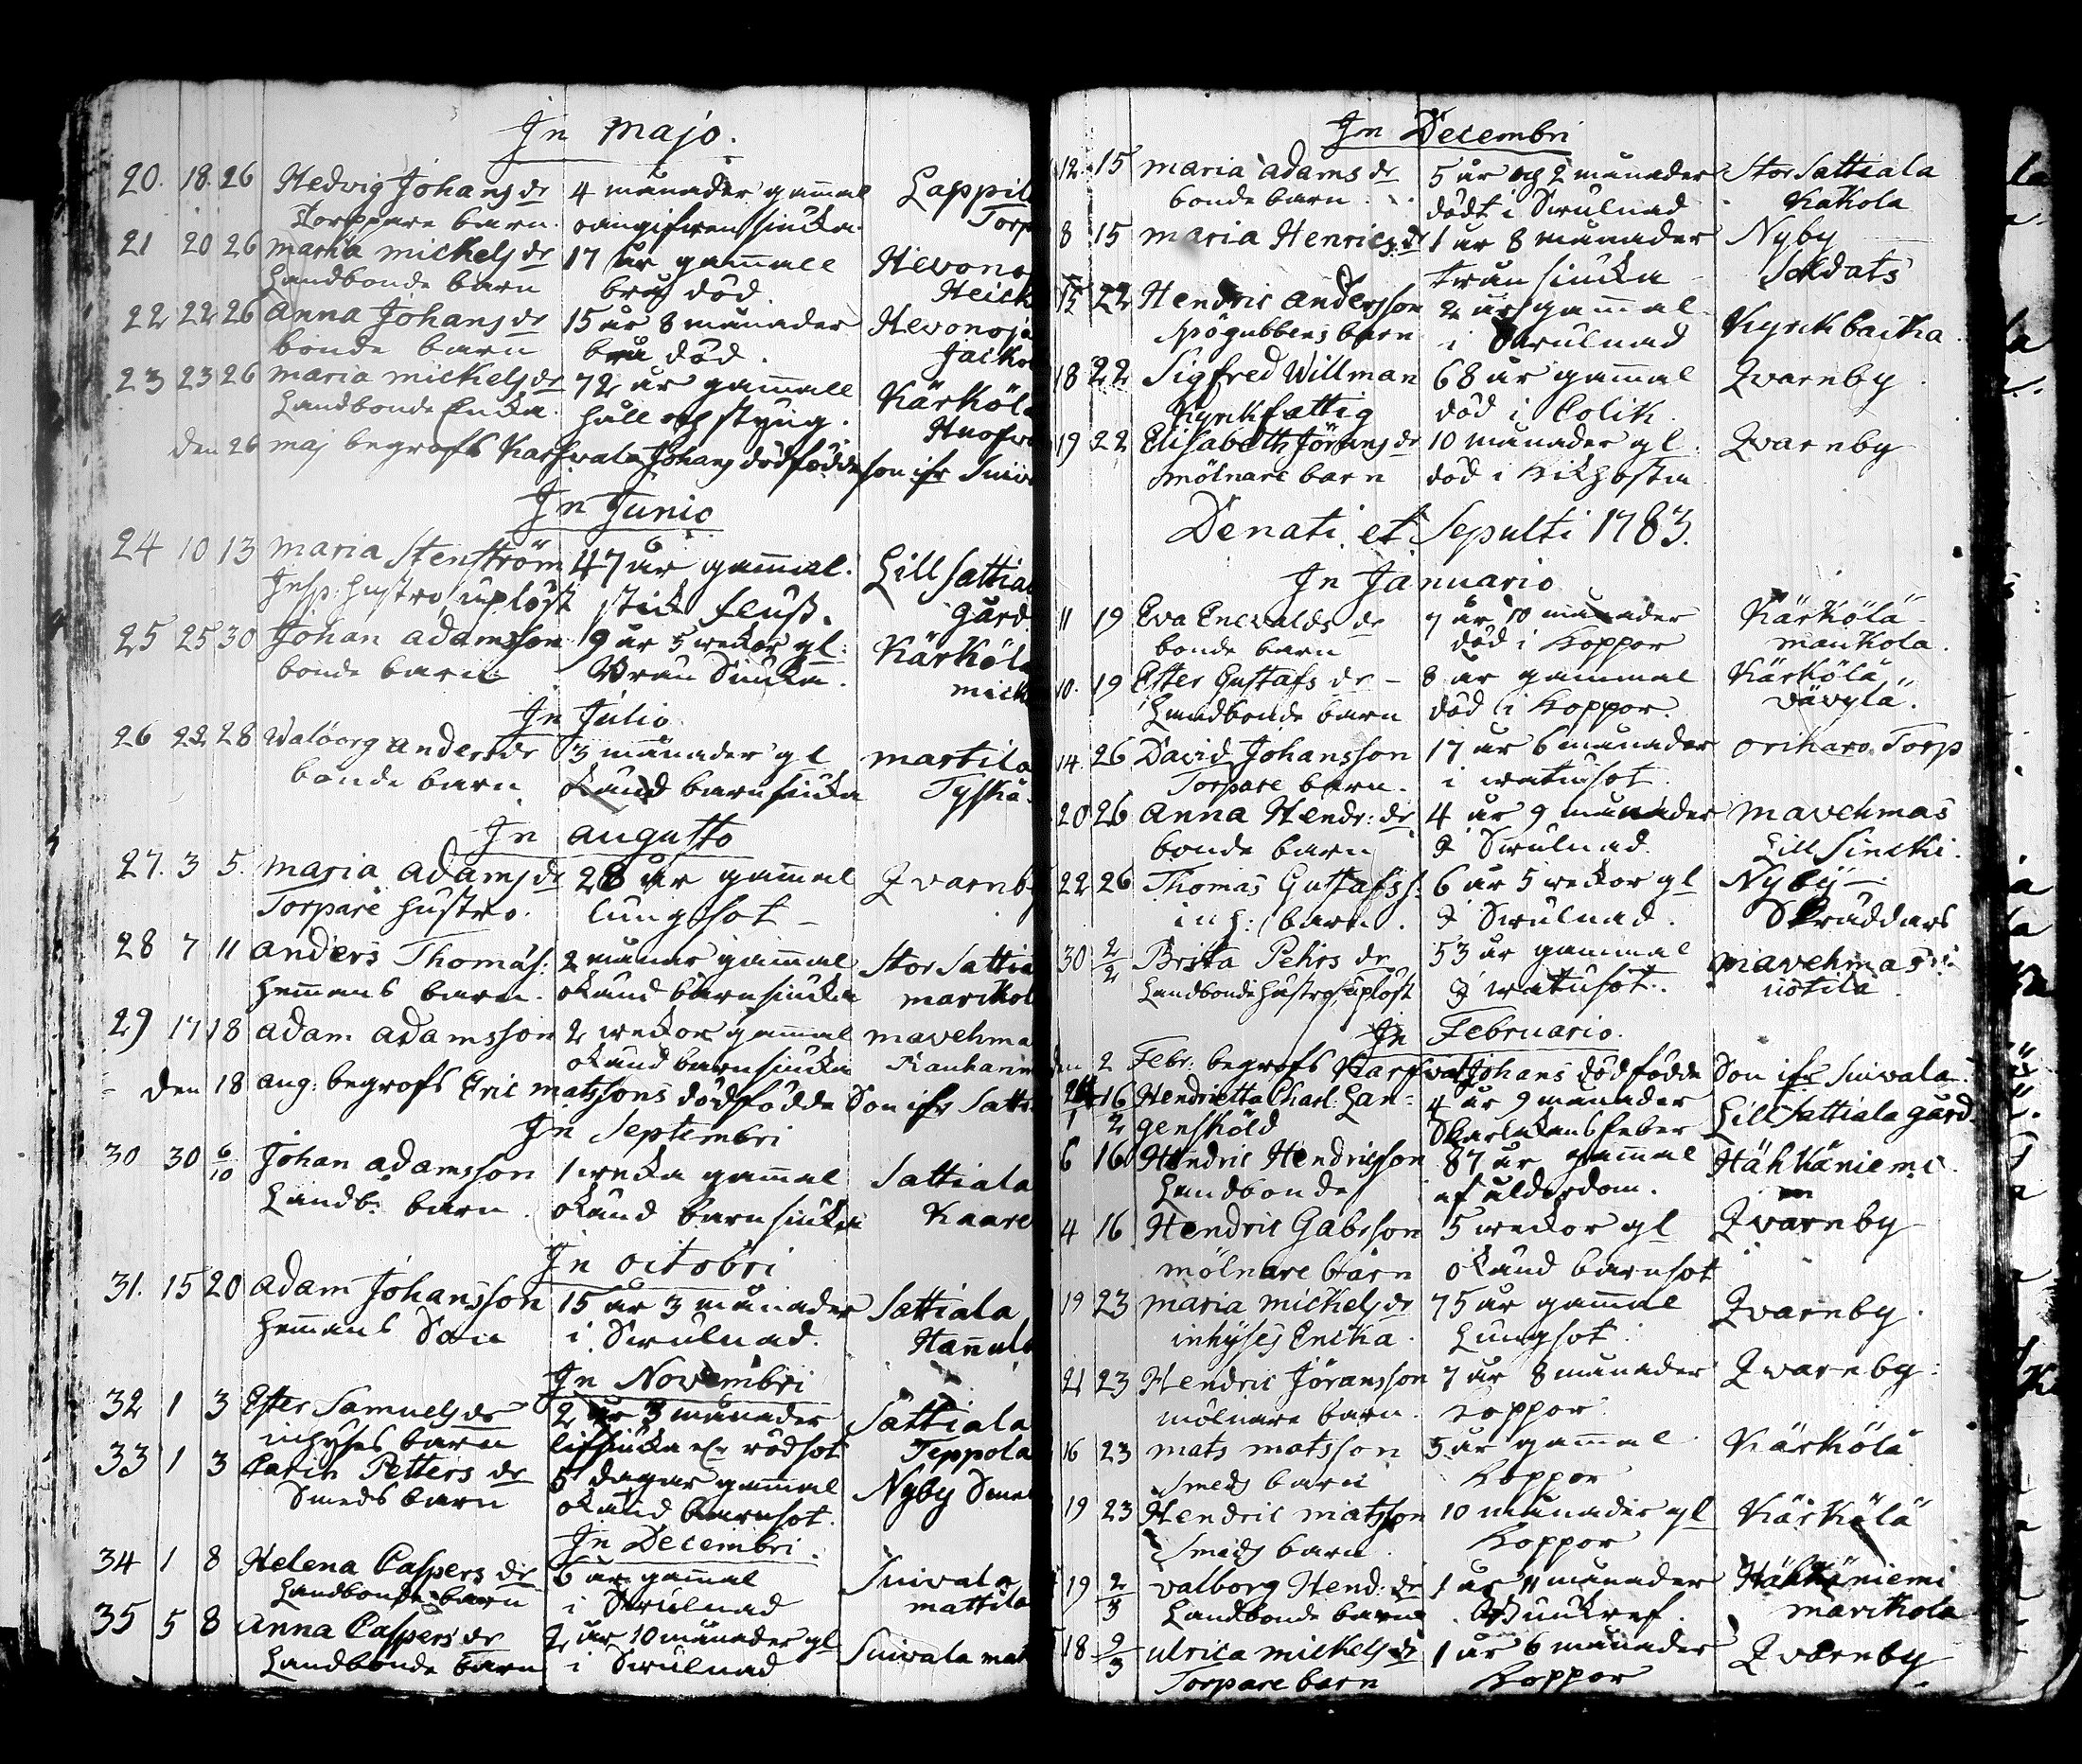 In Majo.
20. 18. 26 Hedvig Johans dr 4 månader gammal Lappil
Torppare barn. oangifven siuka Torp
21 20 26 Maria Mickels dr 17 år gammall Hevono
Landbonde barn brå död. Heick
22 22 26 Anna Johans dr 15 år 8 månader Hevonoja
bonde barn brå död. Jacko
23 23 26 Maria Mickels dr 72 år gammall Kärköl
Landbonde Enka. håll och styng. Huofv
den 26 Maj begrofs Karfvala Johans dödfödde son ifr Suiv
In Junio
24 10 13 Maria Stenström 47 år gammal. Lill Sattial
Insp: hustro uplöst stick fluss. gård
25 25 30 Johan Adamsson 9 år 5 wekor gl: Kärköla
bonde barn Bråu Siuka. Mick
In Julio
26 22 28 Walborg Anders dr 3 månader gl Martila
bonde barn okänd barnsiuka Tyskä.
In Augusto
27. 3 5. Maria Adams dr 28 år gammal Qvarnb
Torpare hustro. lungsot
28 7 11 Anders Thomas: 2 månar gammal Stor Sattia
hemmans barn. okänd barnsiuka Marikol
29 17 18 Adam Adamsson 2 wekor gammal Mavehma
okänd barnsiuka Rauhani
den 18 Aug: begrofs Eric Matssons dödfödde Son ifr Satti
In Septembri
30 30 6/10 Johan Adamsson 1 weka gammal Sattiala
Landb: barn. okänd barnsiuka Kaare
In Octobri
31. 15 20 Adam Johansson 15 år 3 månader Sattiala
hemmans Son i Swulnad. Hannula
In Novembri
32 1 3 Ester Samuels dr 2 år 3 månader Sattiala
inhyses barn lifsiuka el. rödsot Teppola
33 1 3 Carin Petters dr 5 dagar gammal Nyby Smed
Smeds barn okänd barnsot.
In Decembri.
34 1 8 Helena Caspers dr 6 år gammal Suivala
Landbonde barn i Swulnad Mattila
35 5 8 Anna Caspers dr 2 år 10 månader gl Suivala Mat
Landbonde barn i Swulnad
In Decembri
12. 15 Maria Adams dr 5 år och 2 månader Stor Sattiala
bonde barn död i Swulnad Kakola
8 15 Maria Henrics dr 1 år 8 månader Nyby
tran siuka Soldats
15 22 Hendric Andersson 2 år gammal Kyrkbacka
Spögubbens barn i Swulnad
18 22 Sigfred Willman 68 år gammal Qvarnby
Kyrkfattig död i Colik
19 22 Elisabeth Jörans dr 10 månader gl. Qvarnby
Mölnare barn död i Kikhosta
Denati et Sepulti 1783.
In Januario
11 19 Eva Enevalds dr 7 år 10 månader Kärkölä
bonde barn död i koppor Maukola.
10. 19 Ester Gustafs dr 8 år gammal Kärkölä
Landbonde barn död i koppor. Dävylä.
14. 26 David Johansson 17 år 6 månader Oriharo Torp
Torpare barn. i watusot
20 26 Anna Hendr: dr 4 år 9 månader Mavehmas
bonde barn i Swulnad Lill Sineki.
22 26 Thomas Gustafs s: 6 år 5 wekor gl Nyby
inh: barn. i Swulnad. Skräddars
30 2/2 Brita Pehrs dr 53 år gammal Mavehmas
Landbonde hustro uplöst i watusot. Uotila
In Februario.
den 2 Febr: begrofs Karfvala Johans dödfödde Son ifr Suivala.
24/1 16/2 Hendrietta Charl. Lan- 4 år 9 månader Lill Sattiala gård
genskjöld Skarlakansfeber
6 16 Hendric Hendricsson 87 år gammal Hähkäniemi.
Landbonde af ålderdom.
4 16 Hendric Gabrsson 5 wekor gl Qvarnby
Mölnare barn okänd barnsot
19 23 Maria Mickels dr 75 år gammal Qvarnby.
inhyses Encka. Lungsot.
21 23 Hendric Jöransson 7 år 8 månader Qvarnby.
Mölnare barn. koppor
16 23 Mats Matsson 5 år gammal Kärkölä
Smeds barn koppor
19 23 Hendric Matsson 10 månader gl Kärkölä
Smeds barn koppor
19 2/3 Valborg Hend: dr 1 år 11 månader Hähkäniemi
Landbonde barn Marikola
18 2/3 Ulrica Mickels dr 1 år 6 månader Qvarnby
Torpare barn koppor